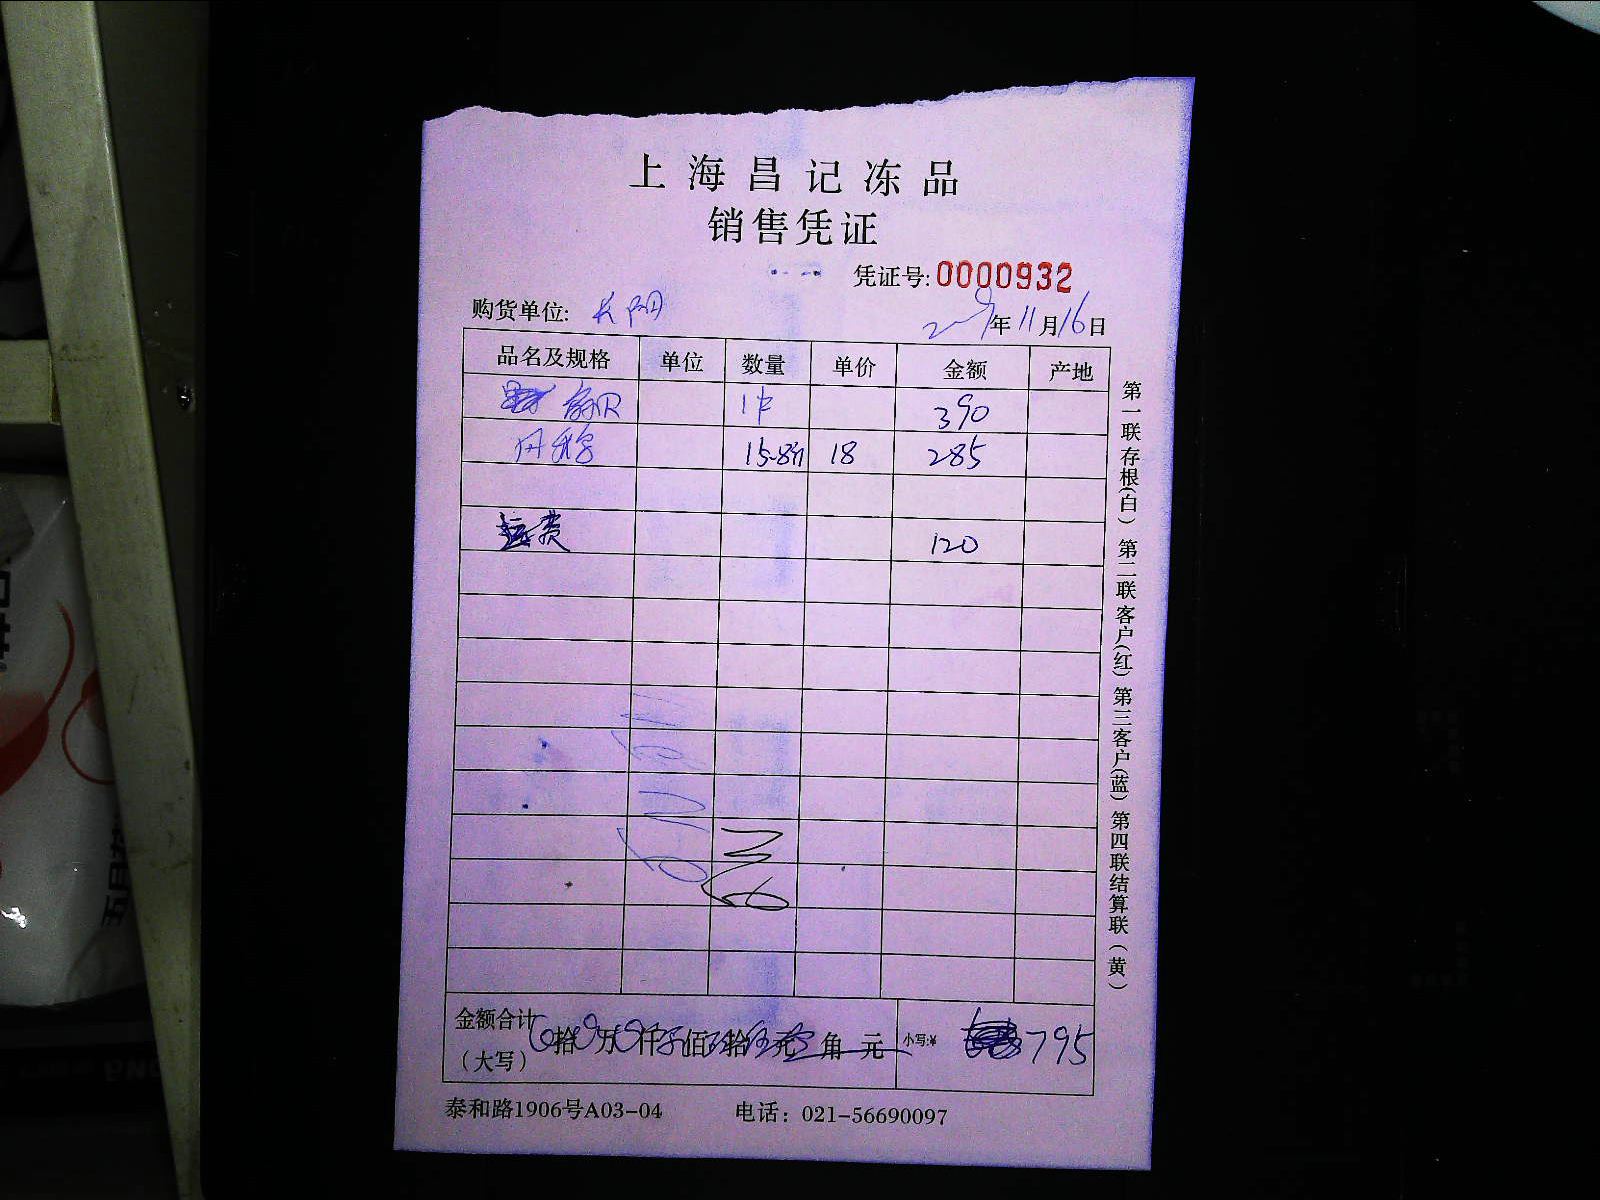 上海昌记冻品
销售凭证
凭证号:0000932
购货单位: 长阳
年11月16日
品名及规格 单位 数量 单价 金额 产地
1件 390
15.8斤 18 285
运费 120
金额合计
(大写) 拾 万 仟 佰 拾 元 角 元 小写:¥ 795
泰和路1906号A03-04 电话：021-56690097
第一联存根(白) 第二联客户(红) 第三客户(蓝) 第四联结算联(黄)